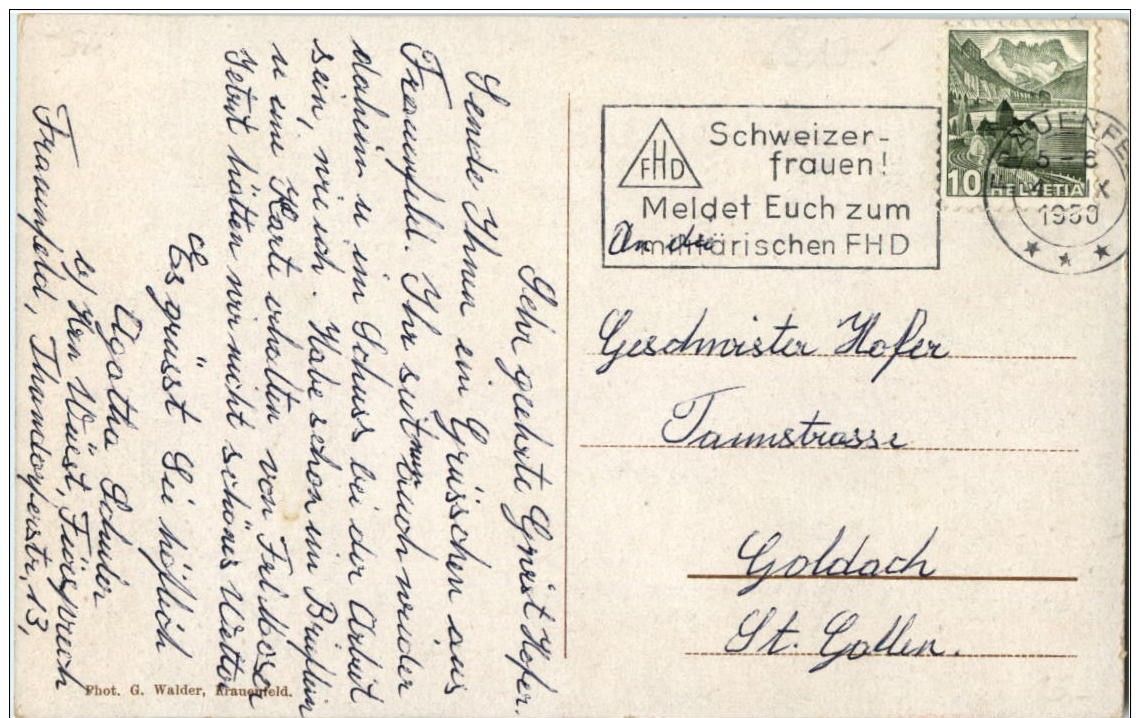 Sehr geehrte Gschwist Hofer.
Sende Ihnen ein Grüsschen aus
Frauenfeld. Ihr seit nun auch wieder
daheim u im Schuss bei der Arbeit
sein, wie ich. Habe schon un Brieflein
u une Karte erhalten von Feldbösen
Jetzt hätten wir nicht schönes Wetter
Es grüsst Sie höflich
Agatha Schuler
b/ Herr Wüest, Fürsprech
Frauenfeld, Thundorferstr. 13,
Phot. G. Walder, Frauenfeld.
FHD
Schweizer-
frauen!
Meldet Euch zum
militärischen FHD
HELVETIA
10
5-6
IX
An die
Geschwister Hofer
Taunstrasse
Goldach
St. Gallen.